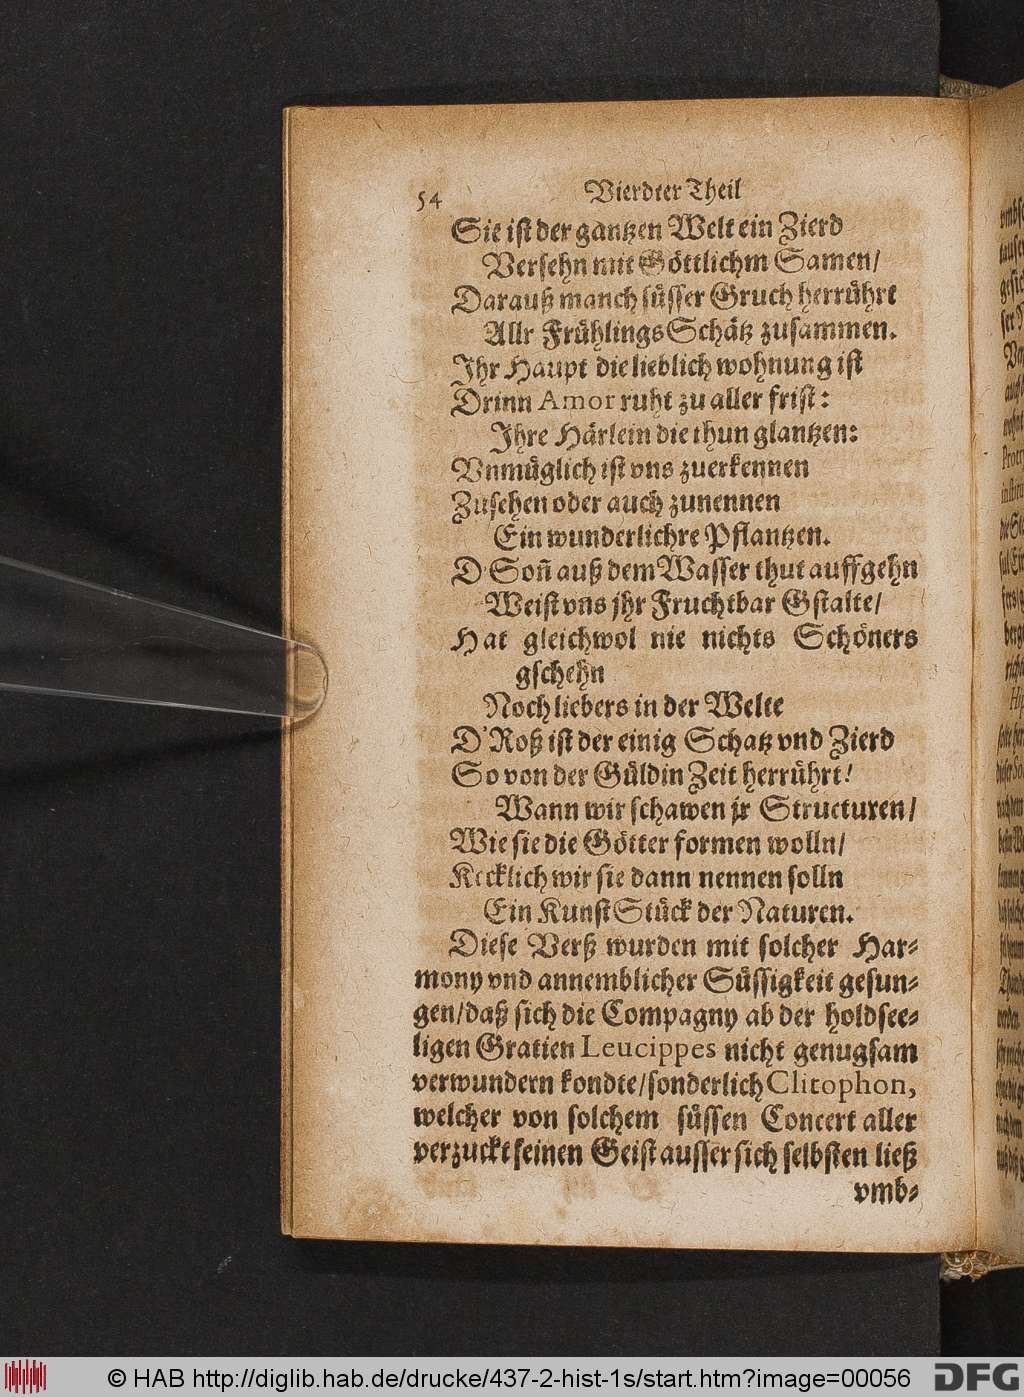 54
Vierdter Theil
Sie ist der gantzen Welt ein Zierd
Versehn mit Göttlichm Samen/
Darauß manch süsser Gruch herrührt
Allr FrühlingsSchätz zusammen.
Ihr Haupt die lieblich wohnung ist
Drinn Amor ruht zu aller frist:
Ihre Härlein die thun glantzen:
Vnmüglich ist vns zuerkennen
Zusehen oder auch zunennen
Ein wunderlichre Pflantzen.
D'Soñ auß dem Wasser thut auffgehn
Weist vns jhr Fruchtbar Gstalte/
Hat gleichwol nie nichts Schöners
gschehn
Noch liebers in der Welte
D'Roß ist der einig Schatz vnd Zierd
So von der Güldin Zeit herrührt!
Wann wir schawen jr Structuren/
Wie sie die Götter formen wolln/
Kecklich wir sie dann nennen solln
Ein KunstStück der Naturen.
Diese Verß wurden mit solcher Har-
mony vnd annemblicher Süssigkeit gesun-
gen/daß sich die Compagny ab der holdsee-
ligen Gratien Leucippes nicht genugsam
verwundern kondte/sonderlich Clitophon,
welcher von solchem süssen Concert aller
verzuckt seinen Geist ausser sich selbsten ließ
vmb-
© HAB http://diglib.hab.de/drucke/437-2-hist-1s/start.htm?image=00056
DFG